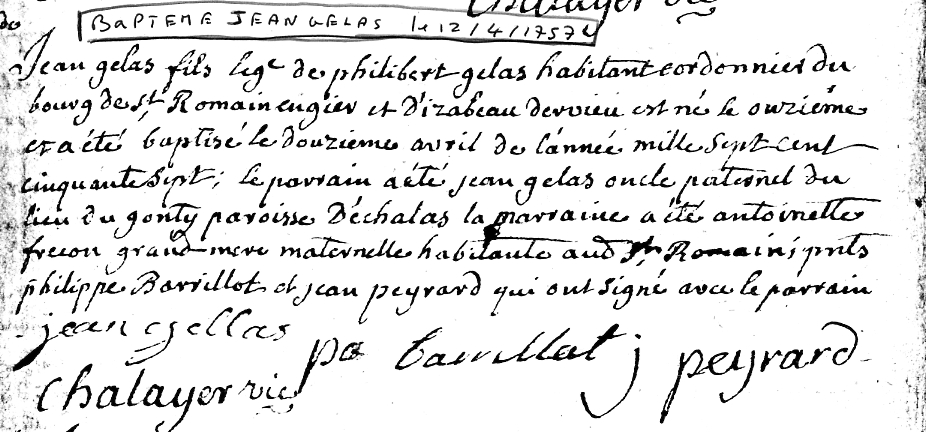 Chalayer vic
BAPTEME JEAN GELAS le 12/4/1757
Jean gelas fils legᵉ de philibert gelas habitant cordonnier du
bourg de St Romain engier et D'izabeau dervieu est né le onzieme
et a été baptisé le douzieme avril de l'année mille sept cent
cinquante sept; le parrain a été jean gelas oncle paternel du
lieu du gonty paroisse D'échalas la marraine a été antoinette
frecon grand-mere maternelle habitante aud St Romain; pnts
philippe Barrillot et jean peyrard qui ont signé avec le parrain
jean gellas
pa barrillat j peyrard
Chalayer vic